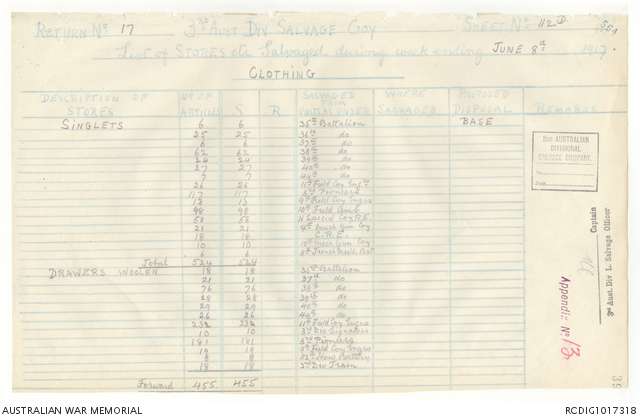 RETURN No 17 3rd AUST DIV SALVAGE COY SHEET No 112D
List of STORES etc Salvaged during week ending JUNE 8th 1917
CLOTHING
DESCRIPTION OF STORES No OF ARTICLES S R SALVAGED FROM WHERE SALVAGED PROPOSED DISPOSAL REMARKS
SINGLETS 6 6 35th Battalion BASE
25 25 36th do
6 6 37th do
62 62 38th do
24 24 39th do
27 27 40th do
7 7 do
26 26 11th Field Coy Engrs
117 117 Pioneers
13 13 9th Field Coy Engrs
98 98 Field Amb
58 58
21 21 Gun Coy
18 18
10 10 Gun Coy
6 6
Total 524 524
DRAWERS WOOLEN 18 18 35th Battalion
21 21 37th do
76 76 38th do
28 28 39th do
20 20 40th do
26 26 do
232 232 11th Field Coy Engrs
10 10 3rd Div Signallers
181 181 3rd Pioneers
18 18 Field Coy Engrs
8 8 Battery
18 18 Div Train
Forward 455 455
3RD AUSTRALIAN
DIVISIONAL
SALVAGE COMPANY.
No.
Date
Captain
3rd Aust. Div L. Salvage Officer
Appendix No 13
AUSTRALIAN WAR MEMORIAL RCDIG1017318